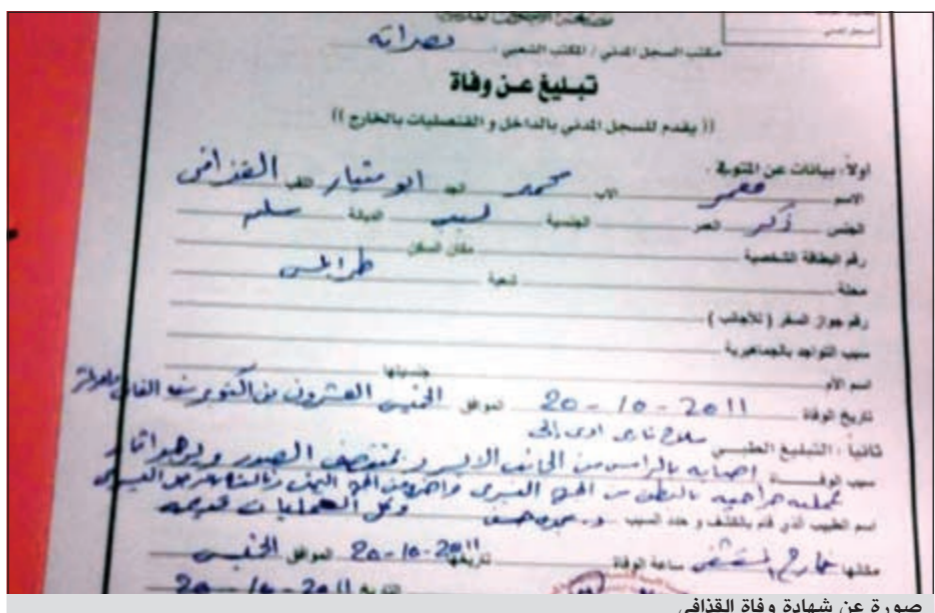 مكتب السجل المدني / المكتب الشعبي : مصراته
تبليغ عن وفاة
(( يقدم للسجل المدني بالداخل و القنصليات بالخارج ))
أولاً : بيانات عن المتوفي .
الاسم معمر الاب محمد الجد ابو منيار اللقب القذافي
الجنس ذكر العمر الجنسية ليبي الديانة مسلم
رقم البطاقة الشخصية مكان السكن
محلة شعبية طرابلس
رقم جواز السفر ( للأجانب )
سبب التواجد بالجماهيرية
اسم الأم جنسيتها
تاريخ الوفاة 20 - 10 - 2011 الموافق الخميس العشرون من اكتوبر سنة الفان
سلاح ناري ادى إلى
ثانياً : التبليغ الطبي
سبب الوفاة اصابه بالراس من الجانب الايسر و بمنتصف الصدر ويوجد اثار
عمليه جراحيه بالبطن
اسم الطبيب الذي قام بالكشف و حدد السبب وكل العمليات قديمه
مكانها خارج المستشفى ساعة الوفاة تاريخها 20-10-2011 الموافق الخميس
التاريخ 20-10-2011
صورة عن شهادة وفاة القذافي